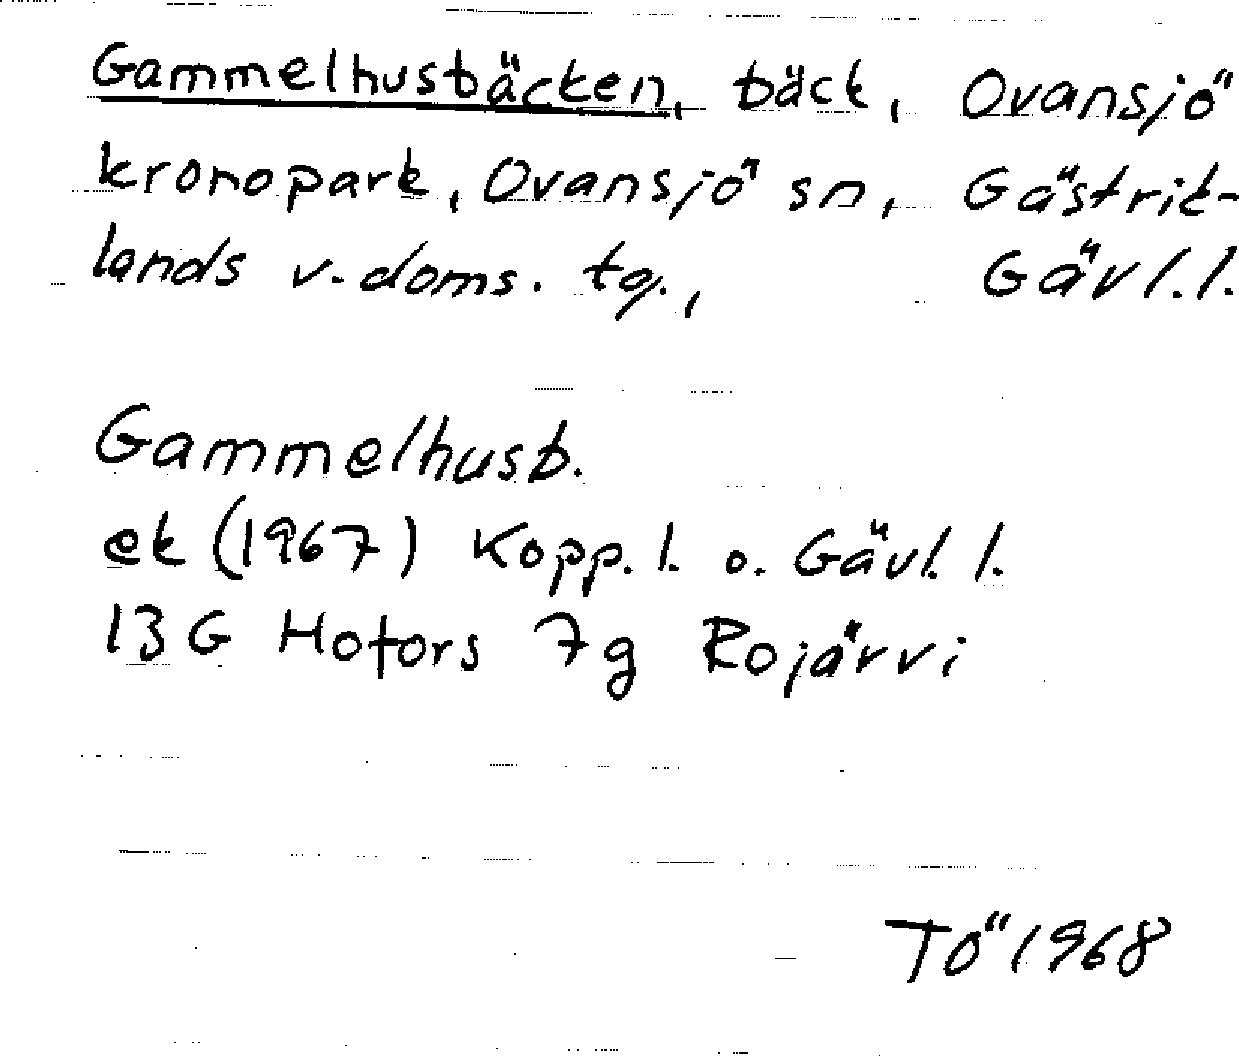 Gammelhusbäcken, bäck, Ovansjö
kronopark, Ovansjö sn, Gästrik-
lands v. doms. tg., Gävl.l.
Gammelhusb.
ek (1967) Kopp. l. o. Gävl. l.
13 G Hofors 7g Rojärvi
TÖ 1968